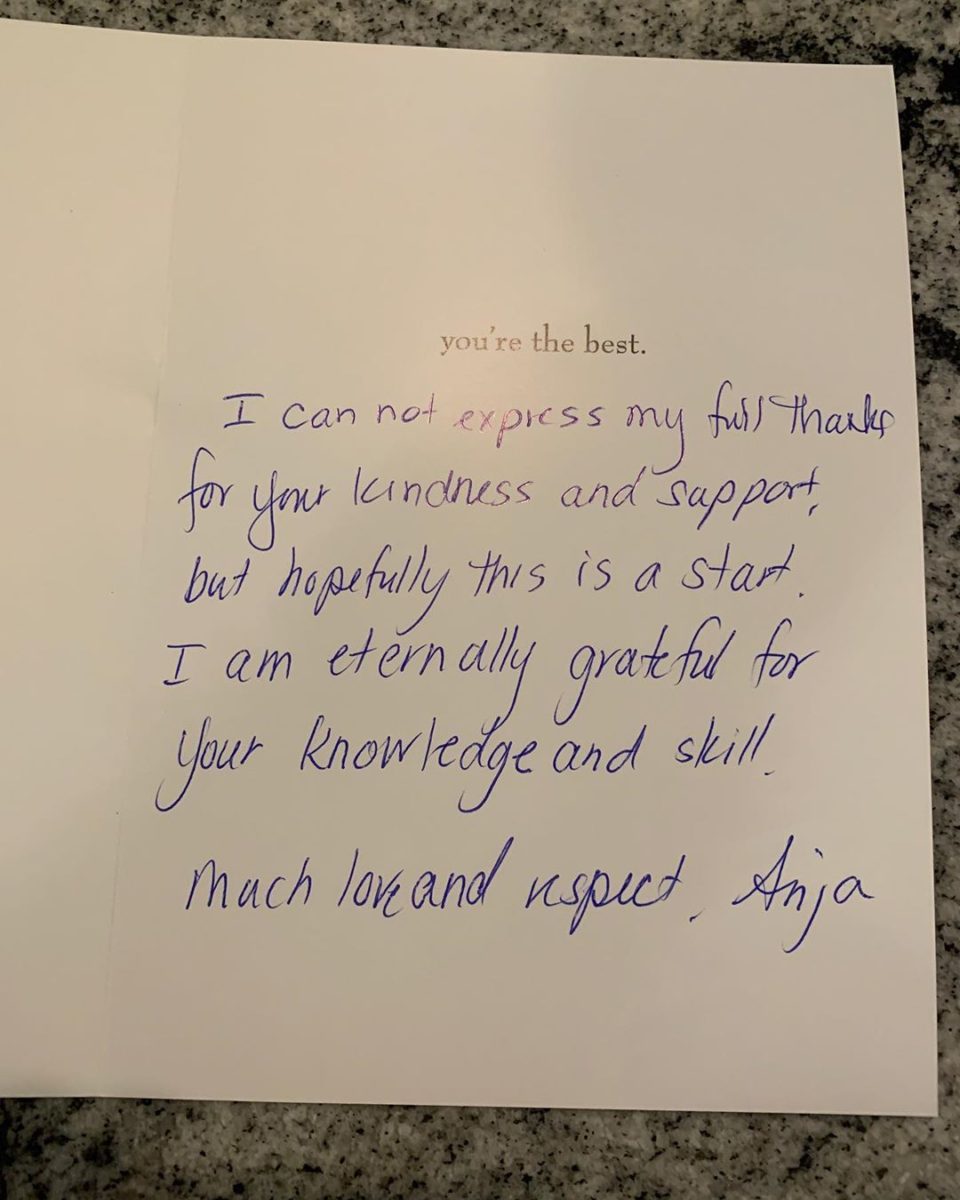 you're the best.
I can not express my full thanks
for your kindness and support,
but hopefully this is a start.
I am eternally grateful for
your knowledge and skill.
Much love and respect, Anja